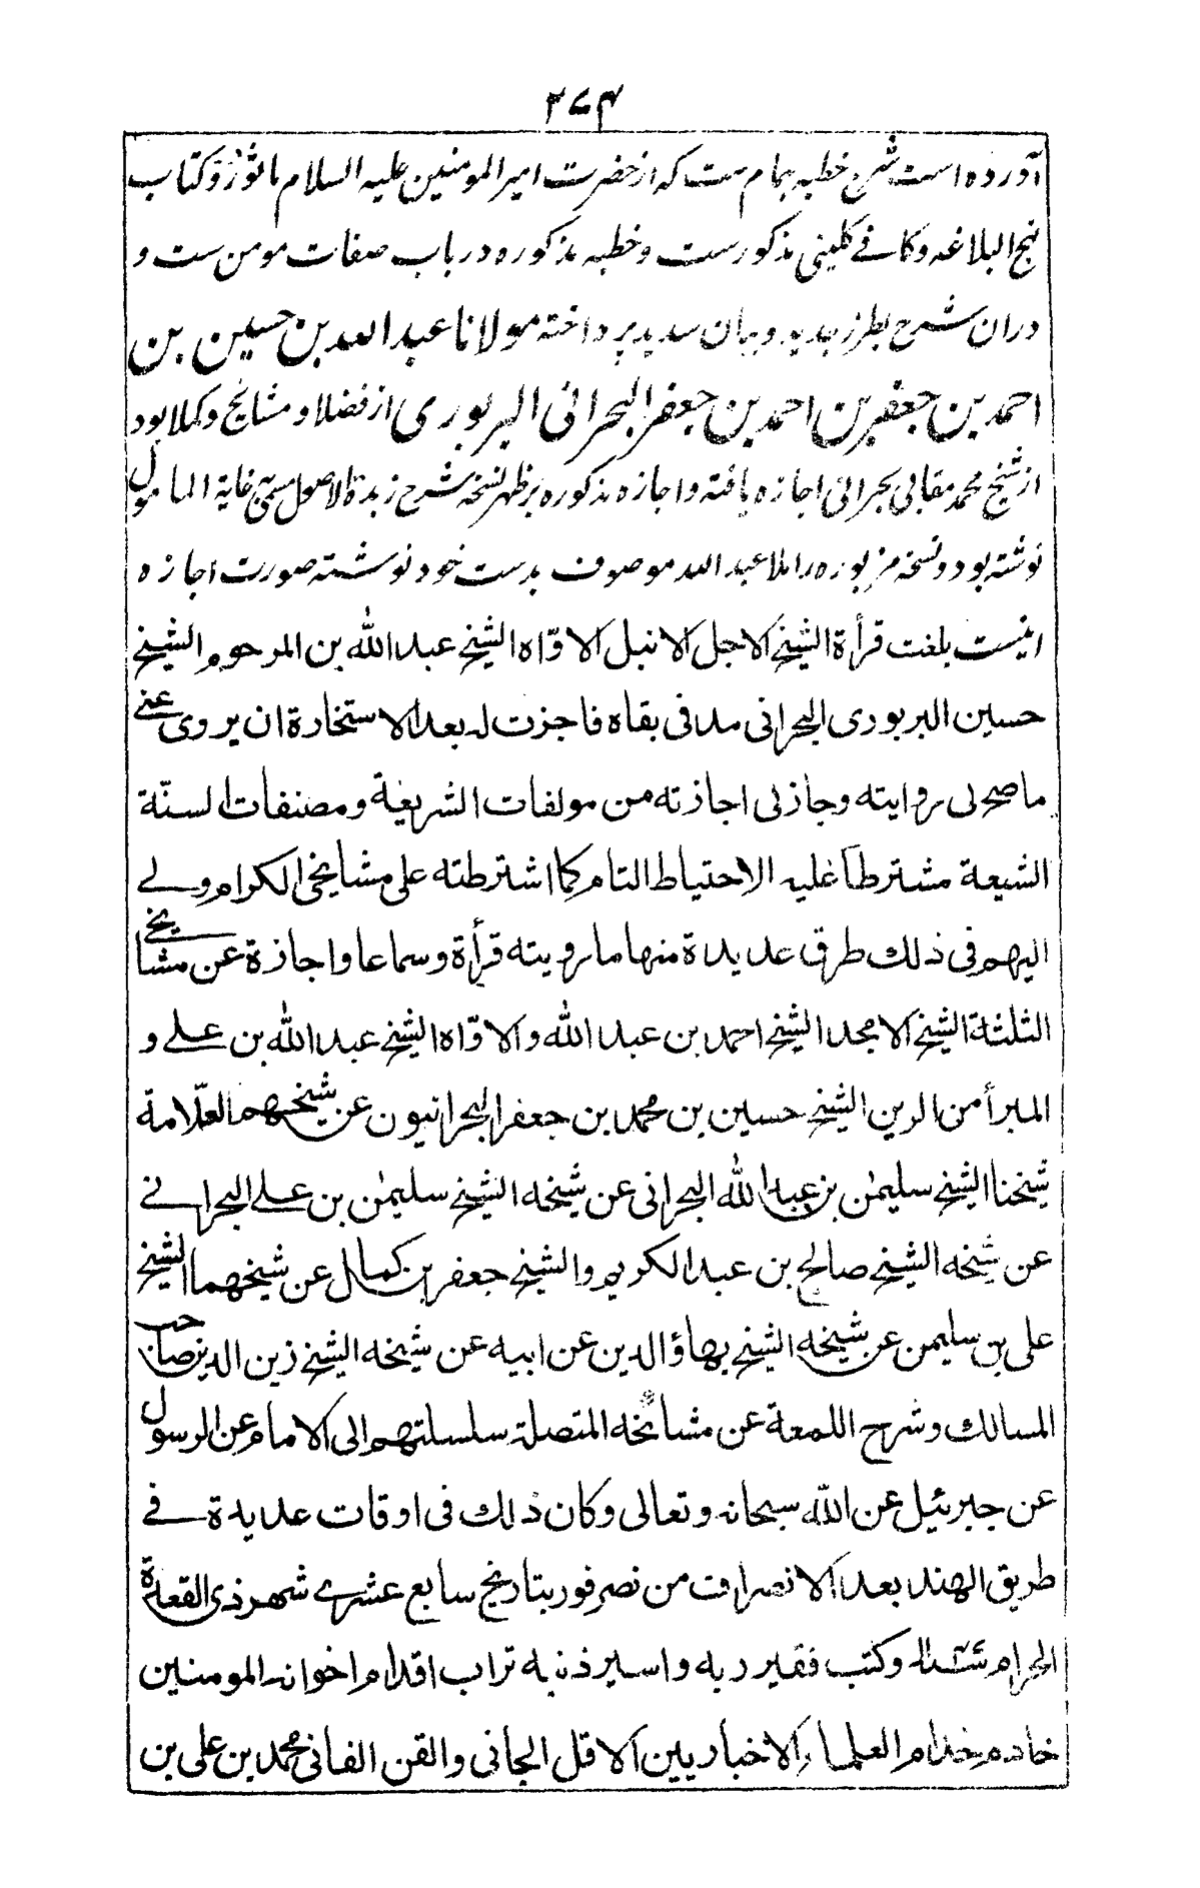 ۲۷۴
آورده است شرح خطبه همام ست که از حضرت امیر المومنین علیه السلام ماثور و کتاب
نهج البلاغه و کافے کلینی مذکورست و خطبه مذکوره در باب صفات مومن ست و
دران شرح بطرز جدید و بیان سدید پرداخته مولانا عبد الله بن حسین بن
احمد بن جعفر بن احمد بن جعفر البحرانی البربوری از فضلا و مشائخ و کملا بود
از شیخ محمد مقابی بحرانی اجازه یافته و اجازه مذکوره بر ظهر نسخه شرح زبدة الاصول مسمی بغایة المامول
نوشته بود و نسخه مزبوره را ملا عبد الله موصوف بدست خود نوشته صورت اجازه
اینست بلغت قرأة الشیخ الاجل الانبل الاوّاه الشیخ عبد الله بن المرحوم الشیخ
حسین البربوری البحرانی مد فی بقاه فاجزت له بعد الاستخارة ان یروی عنے
ما صح لی روایته وجاز لی اجازته من مولفات الشریعة ومصنفات السنّة
الشیعة مشترطا علیه الاحتیاط التام کما اشترطته علی مشایخی الکرام ولے
الیهم فی ذلك طرق عدیدة منها ما رویته قرأة وسماعا واجازة عن مشایخے
الثلثة الشیخ الامجد الشیخ احمد بن عبد الله والاوّاه الشیخ عبد الله بن علے و
المبرأ من الرین الشیخ حسین بن محمد بن جعفر البحرانیون عن شیخهم العلّامة
شیخنا الشیخ سلیمٰن بن عبد الله البحرانی عن شیخه الشیخ سلیمٰن بن علے البحرانے
عن شیخه الشیخ صالح بن عبد الکریم والشیخ جعفر بن کمال عن شیخهما الشیخ
علی بن سلیمن عن شیخه الشیخ بهاؤ الدین عن ابیه عن شیخه الشیخ زین الدین صاحب
المسالك وشرح اللمعة عن مشائخه المتصلة سلسلتهم الی الامام عن الرسول
عن جبرئیل عن الله سبحانه وتعالی وکان ذلك فی اوقات عدیدة فے
طریق الهند بعد الانصراف من نصرفور بتاریخ سابع عشرے شهر ذی القعدة
الحرام وکتب فقیر ربه واسیر ذنبه تراب اقدام اخوانه المومنین
خادم خدام العلماء الاخباریین الاقل الجانی والقن الفانی محمد بن علی بن